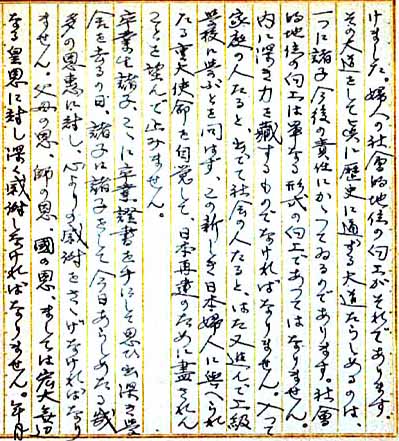 けました。婦人の社會的地位の向上がそれであります。
その大道をして真に歴史に通ずる大道たらしめるのは、
一つに諸子今後の責任にかゝつてゐるのであります。社會
的地位の向上は単なる形式の向上であつてはなりません。入つて
内に深き力を藏するものでなければなりません。
家庭の人たると、出でて社会の人たると、はた又進んで上級
學校に學ぶとを問はず、この新しき日本婦人に與へられ
たる重大使命を自覚して、日本再建のために盡されん
ことを望んで止みません。
卒業生諸子、こゝに卒業證書を手にして思ひ出深き學
舎を去るの日、諸子は諸子をして今日あらしめたる幾
多の恩恵に対し、心よりの感謝をさゝげなければなり
ません。父母の恩、師の恩、國の恩、ましては宏大無辺
なる皇恩に対し深く感謝しなければなりません。年月